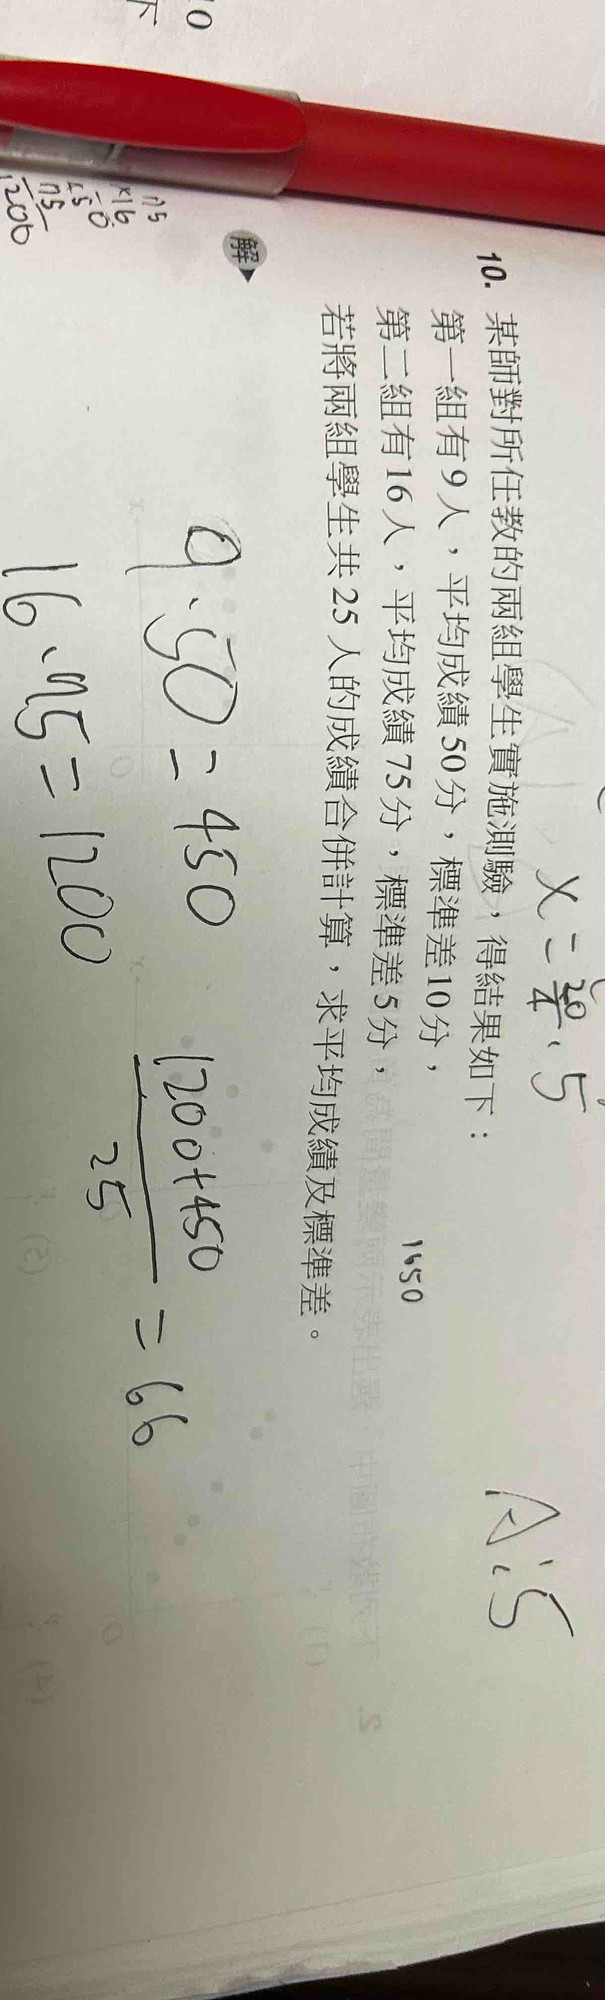 10. 某師對所任教的兩組學生實施測驗，得結果如下：
第一組有9人，平均成績50分，標準差10分，
第二組有16人，平均成績75分，標準差5分，
若將兩組學生共25人的成績合併計算，求平均成績及標準差。
解
x = 20/4 . 5
A:5
1650
9.50 = 450
16.75 = 1200
1200+450
25
= 66
75
×16
1200